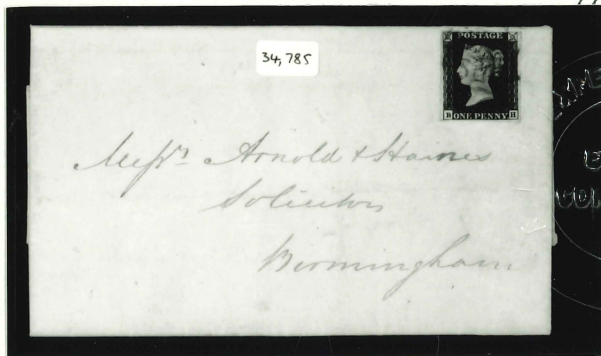 34,785
POSTAGE
B H
ONE PENNY
Messrs Arnold & Haines
Solicitors
Birmingham